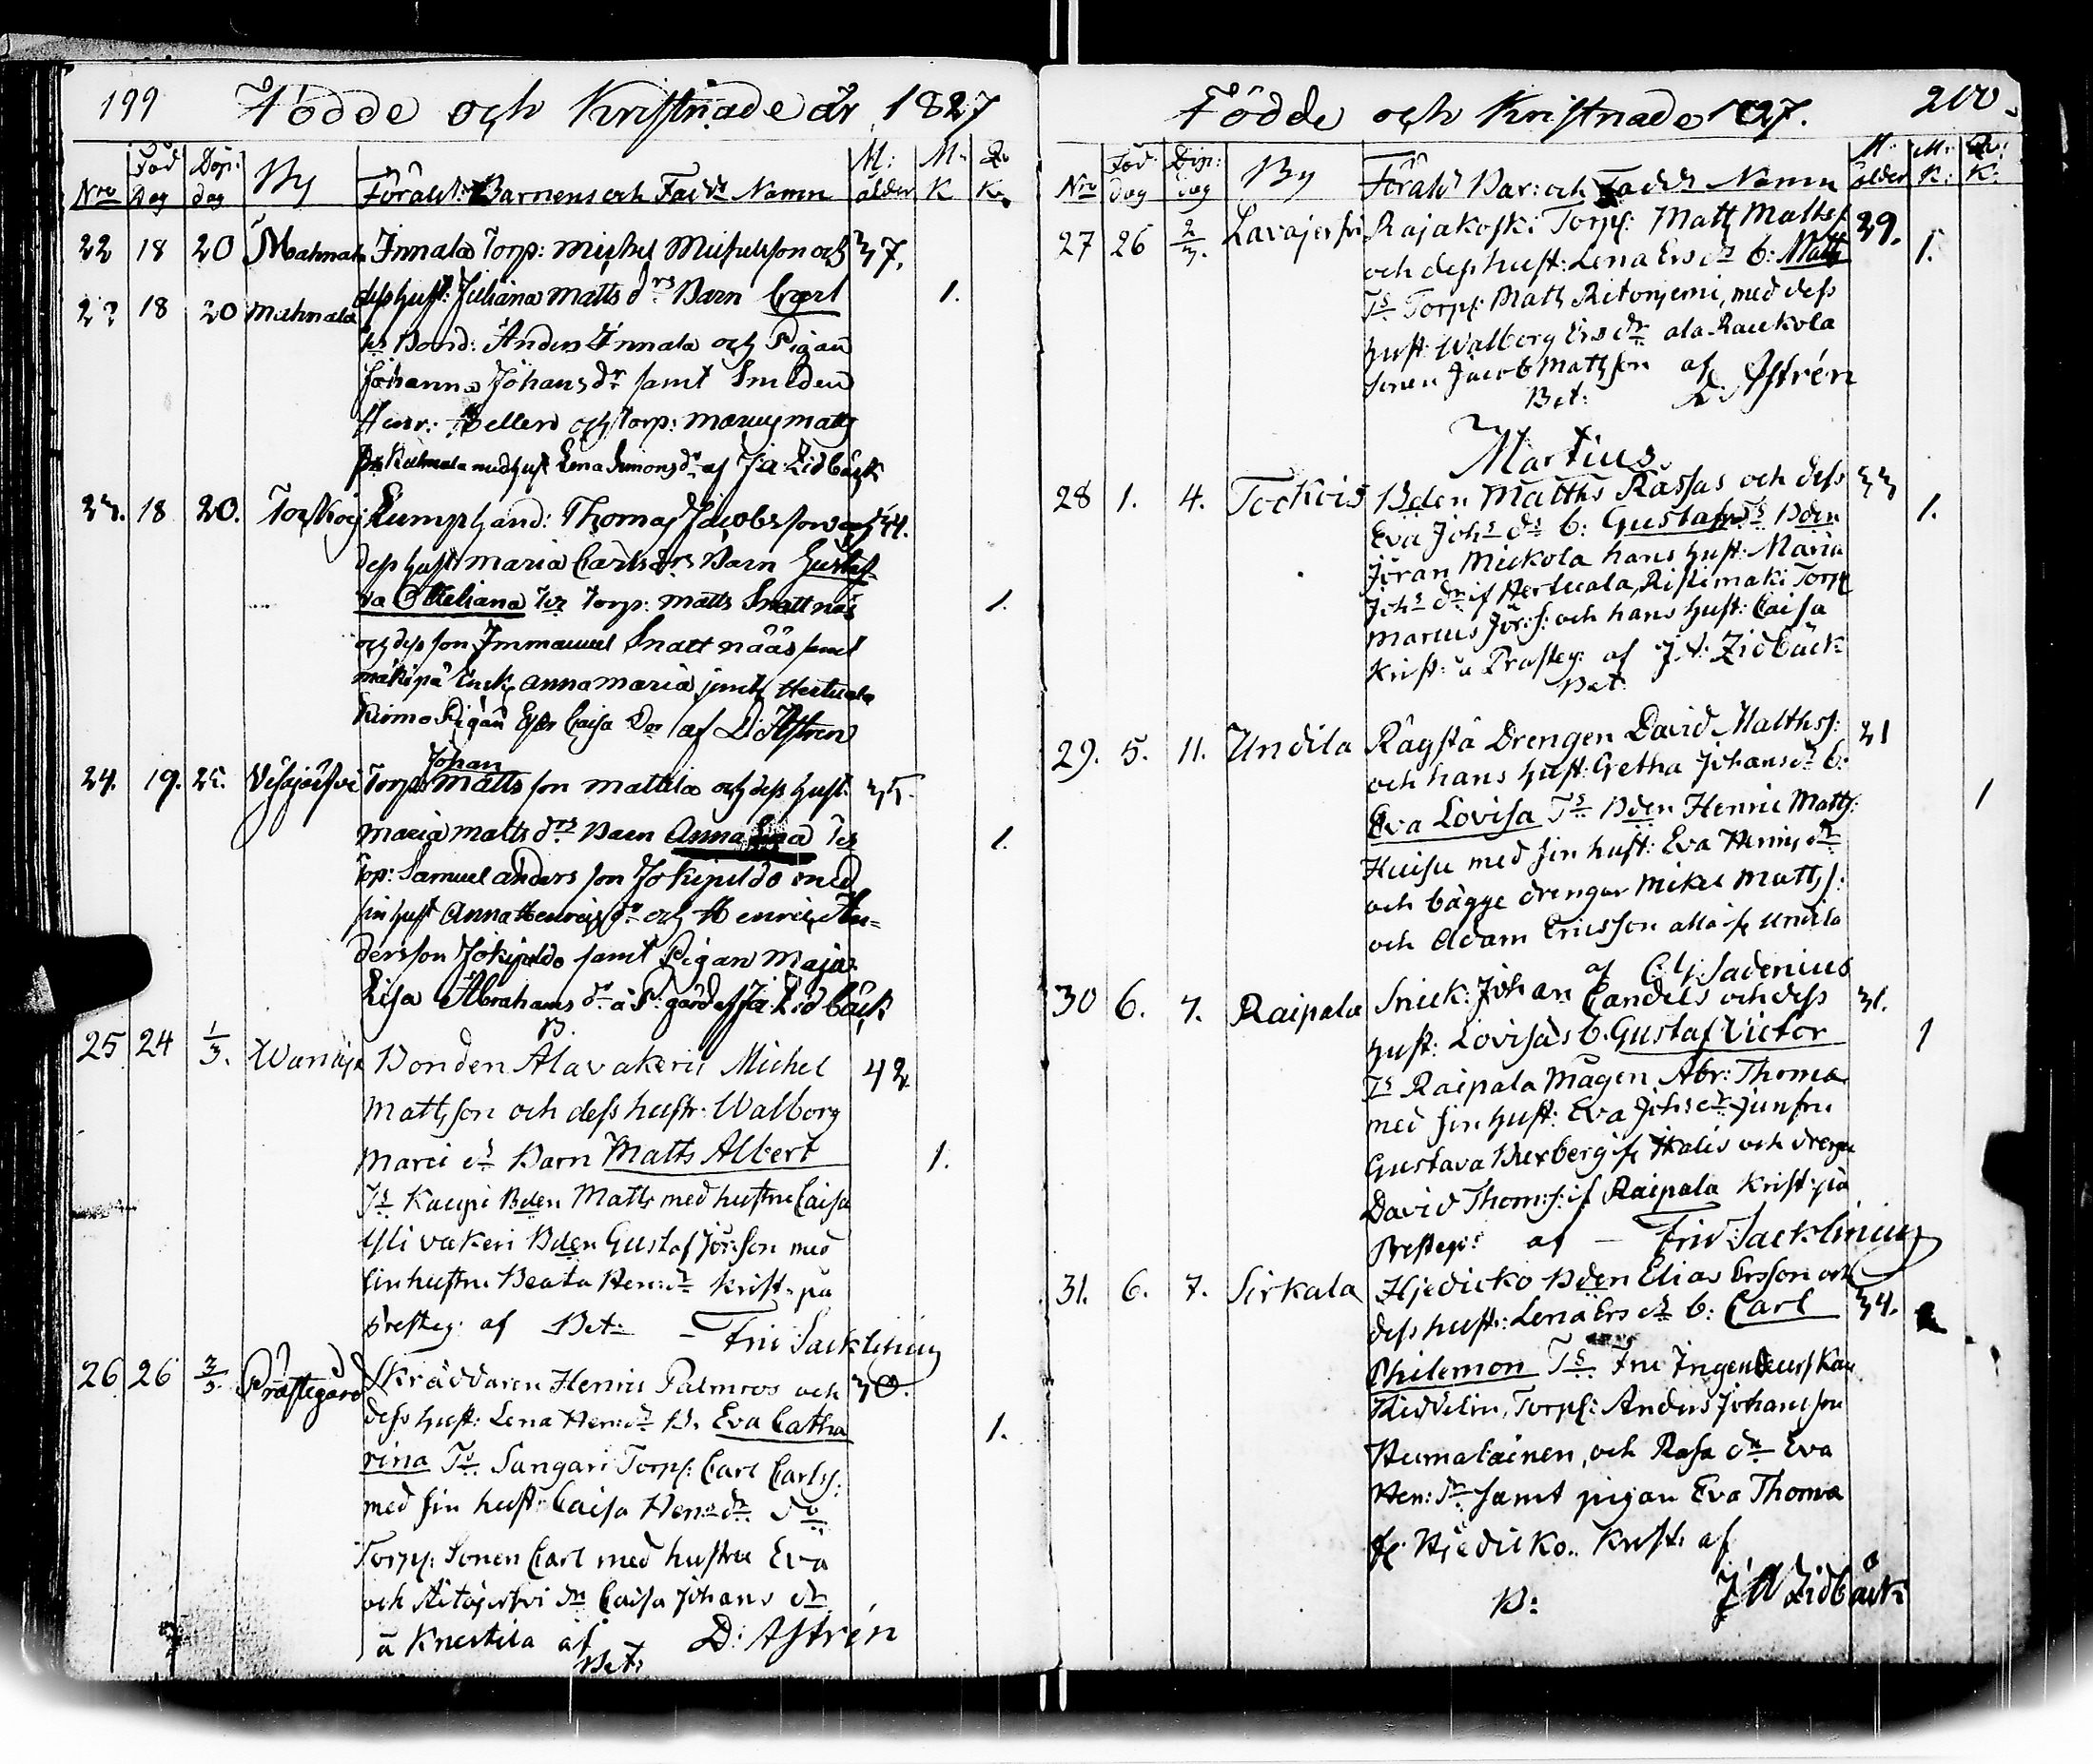 199 Födde och Kristnade år 1827
Nro Föd Dag Döp: dag By Föräld: Barnens och Fadd: Namn M: ålder M: K Qv K.
22 18 20 Mahnala Innala Torp: Michel Michelsson och 37.
dess hust: Juliana Matts drs Barn Carl 1.
2? 18 20 Mahnala
Ts Bond: Anders Innala och Pigan
Johanna Johans dr samt Smeden
Henr: Hellen och Torp: Marcus Matts
Kulmala med hust Lena Simons dr af J:A: Zidbäck
23. 18 20. Torp: hand: Thomas Jacobsson och 44.
dess hust: Maria Carls drs Barn Gustaf-
va Otteliana Ts Torp: Matts Snattnäs 1.
och dess son Immanuel Snattnääs samt
Enck Anna Maria Hertuala
Pigan Caisa af D: Astren
24. 19. 25. Johan
Torp: Matts son Mattila och dess hust: 35.
Maria Matts drs Barn Anna Ts 1.
Top: Samuel Anders son Jokipildo med
sin hust Anna Henrics dr och Henric An=
dersson Jokipildo samt Pigan Maja
Lisa Abrahams dr å P: gård af J:A: Zidbäck
B.
25 24 1/3. Bonden Alavakeri Michel 42
Mattsson och dess hustr: Walborg
Marci dr Barn Matts Albert 1.
Ts Kaupi Bden Matts med hustru Caisa
Yli vakeri Bden Gustaf Jörsson med
sin hustru Beata Hen: dr Krist: på
Presteg: af Bet: – Fri: Sacklinius
26 26 3/3. Prästegård Skräddaren Henric Palmroos och 30.
dess hust: Lena Hen: dr B. Eva Catha 1.
rina Ts Sangari Torp: Carl Carls:
med sin hust: Caisa Hen: dr
Torp: Sonen Carl med hustru Eva
och Aitojerfvi dr Caisa Johans dr
å Knertila af D: Astrén
Bet:
Födde och Kristnade 1827. 200.
Nro Föd: dag Döp: dag By Föräld: Bar: och Fadd: Namn M: ålder M: K: Qv: K:
27 26 2/3. Lavajerfvi Rajakoski Torp: Matts Matts: 29. 1.
och dess hust: Lena Ers dr b: Matts
Ts Torp: Matts Ritoniemi, med dess
hust: Walborg Ers dr ala Raukola
sonen Jacob Mattsson af
Bet: D: Astrén
Martius
28 1. 4. Tockois Bden Matths Rassas och dess 33
Eva Johs dr b: Gustaf Ts Bden 1.
Jöran Mickola hans hust: Maria
Johs dr if Hertuala, Ristimaki Torp
Marcus Jör:s: och hans hust: Caisa
Krist: å Prosteg: af J:A: Zidbäck
Bet:
29. 5. 11. Undila Rågstå Drengen David Matths: 21
och hans hust: Gretha Johans dr b:
Eva Lovisa Ts Bden Henric Matts: 1
Huisu med sin hust: Eva Henrics dr
och bägge drengar Mikel Matts:
och Adam Ericsson alla if Undila
af C: G: Sadenius
30 6. 7. Raipala Snick: Johan Candels och dess 31.
hust: Lovisas b: Gustaf Victor 1
Ts Raipala Mågen Abr: Thoma
med sin hust: Eva Johs dr Junfru
Gustava Buxberg if Italis och drenge
David Thom:s: if Raipala Krist: på
Presteg: af – Frid: Sacklinius
31. 6. 7. Sirkala Hjedicko Bden Elias Ersson och
dess hust: Lena Ers dr b: Carl 34.
Philemon Ts Fru Ingenieurskan
Kiddelin, Torp: Anders Johansson
Humalainen, och Rasa dr Eva
Hen: dr samt pigan Eva Thoma
if Hjedicko. Krist: af
B: J A Zidbäck